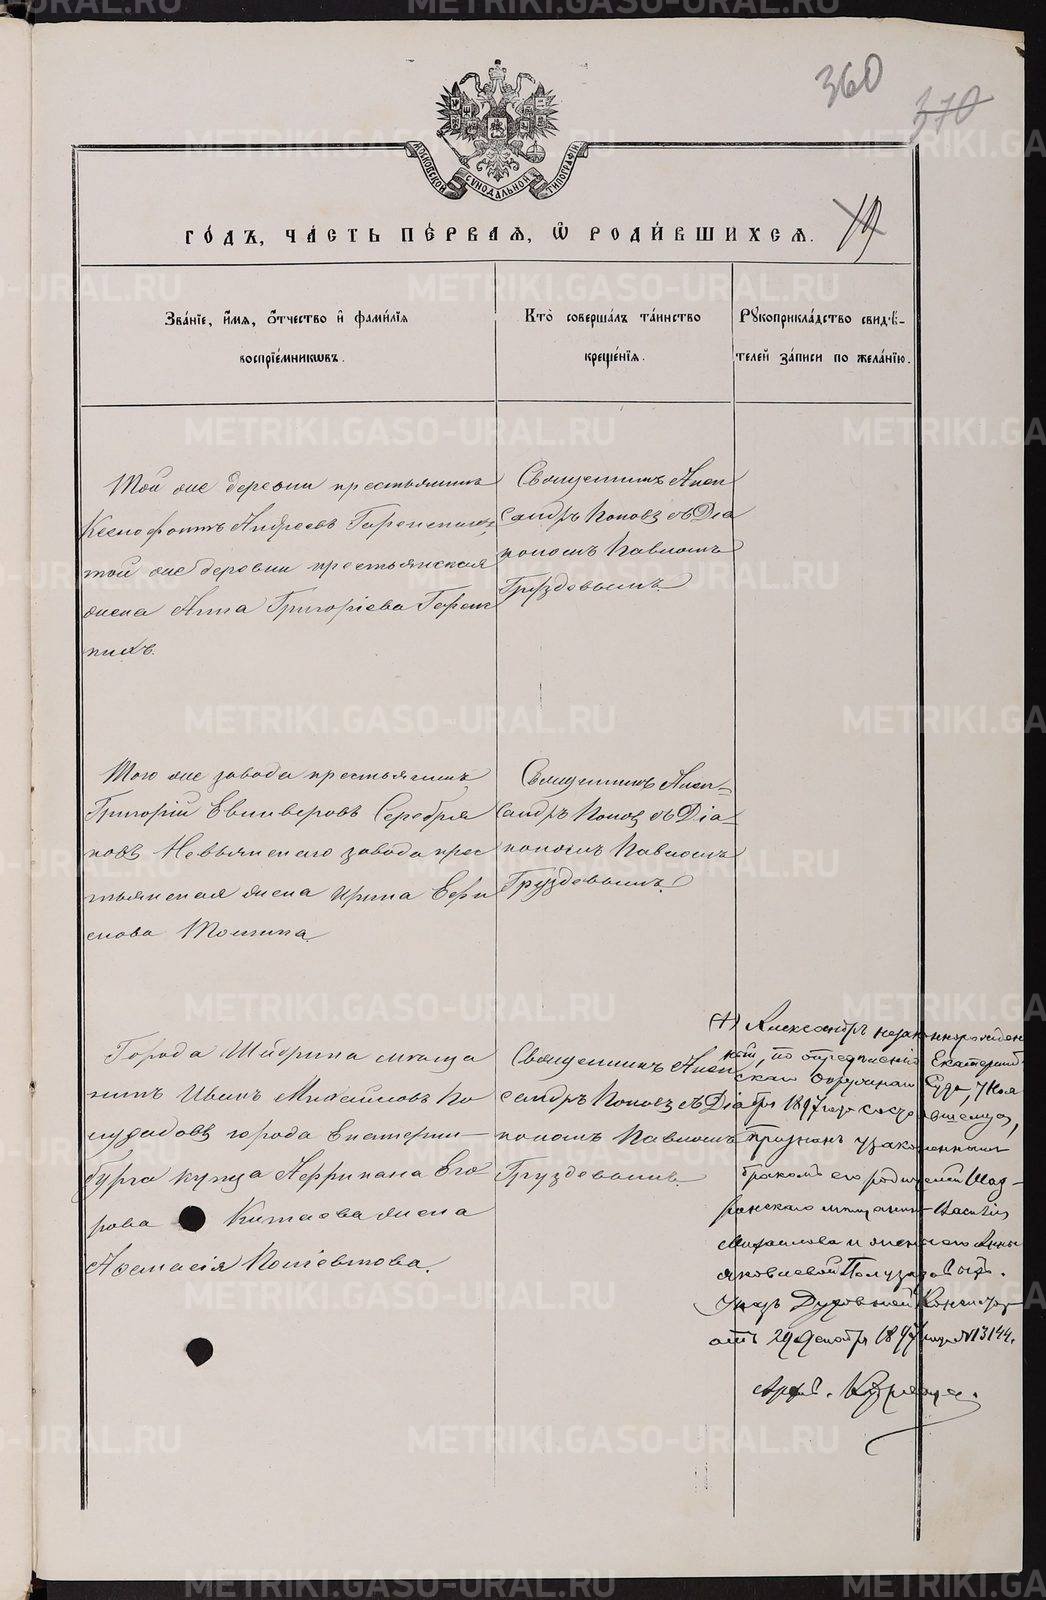 METRIKI.GASO-URAL.RU
360
370
МОСКОВСКОЙ СѴНОДАЛЬНОЙ ТИПОГРАФІИ
ГО́ДЪ, ЧА́СТЬ ПЕ́РВАЯ, Ѡ҆ РОДИ́ВШИХСЯ.
19
Зва́нїе, и҆́мя, ѻ҆́тчество и҆ фами́лїя
воспрїе́мникωвъ.
Кто̀ соверша́лъ та́инство
креще́нїя.
Рꙋкоприкла́дство свидѣ́-
телей за́писи по жела́нїю.
Той же деревни крестьянинъ
Ксенофонтъ Андреевъ
той же деревни крестьянская
жена Анна Григоріева
кихъ.
Священникъ Алек
сандръ Поповъ съ Діа
кономъ Павломъ
Груздевымъ.
Того же завода крестьянинъ
Григорій Евпиперовъ Серебря
ковъ Невьянскаго завода крес
тьянская жена Ирина
Тошина.
Священникъ Алек-
сандръ Поповъ съ Діа-
кономъ Павломъ
Груздевымъ.
Города мѣща
нинъ Иванъ Михайловъ По
лузадовъ города Екатерин-
бурга купца Африкана Его
рова Китаева жена
Афанасія
Священникъ Алек
сандръ Поповъ съ Діа
кономъ Павломъ
Груздевымъ.
(+) Александръ незаконнорожден
ный, по опредѣленію Екатеринб.
скаго Окружнаго Суда, 7 Ноя
бря 1897 года состоявшемуся,
признанъ узаконеннымъ
бракомъ его родителей Шад-
ринскаго мѣщанина Василія
Михайлова и жены его Анны
Яковлевой Полузадовыхъ.
Указъ Духовной Консисторіи
отъ 29 Декабря 1897 года № 13144.